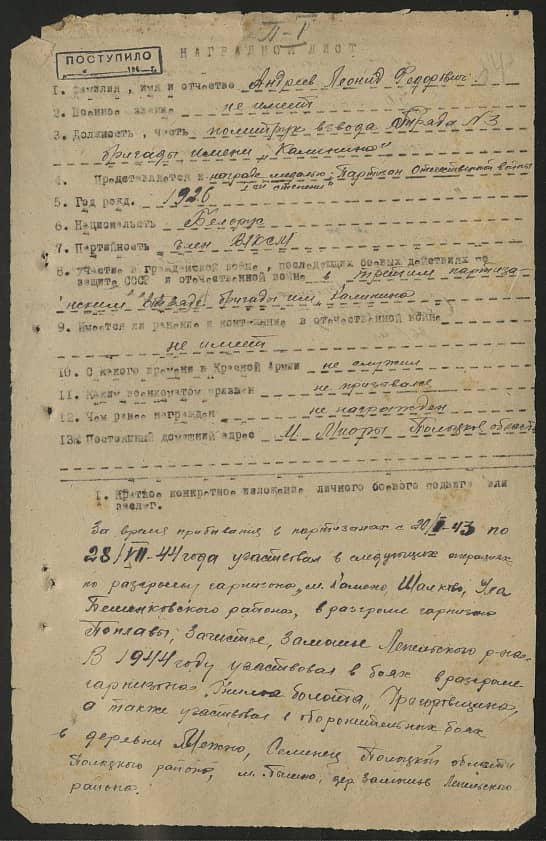 II-I
ПОСТУПИЛО
НАГРАДНОЙ ЛИСТ
1. Фамилия, имя и отчество Андреев Леонид Федорович
2. Военное звание не имеет
3. Должность, часть политрук взвода отряда №3
бригады имени "Калинина"
4. Представляется к награде медалью: Партизан Отечественной войны
II степени"
5. Год рожд. 1926
6. Национальность Белорус
7. Партийность член ВЛКСМ
8. Участие в гражданской войне, последующих боевых действиях по
защите СССР и отечественной войне в третьем партиза-
нском отряде бригады им. Калинина
9. Имеется ли ранение и контужение в отечественной войне
не имеет
10. С какого времени в Красной Армии не служил
11. Каким военкоматом призван не призывался
12. Чем ранее награжден не награжден
13. Постоянный домашний адрес м. Миоры Полоцкой области
I. Краткое конкретное изложение личного боевого подвига или
заслуг.
За время пребывания в партизанах с 20/ -43 по
28/VII-44 года участвовал в следующих операциях
по разгрому гарнизона, м. Камено, Ула
Бешенковского района, в разгроме гарнизона
Поплавы, Зачистье, Замошье Лепельского р-на.
В 1944 году участвовал в боях в разгроме
гарнизона болота,
а также участвовал в оборонительных боях
в деревни Межно, Семенец Полоцкой области
Полоцкого района, м. Пышно, дер. Лепельского
района.